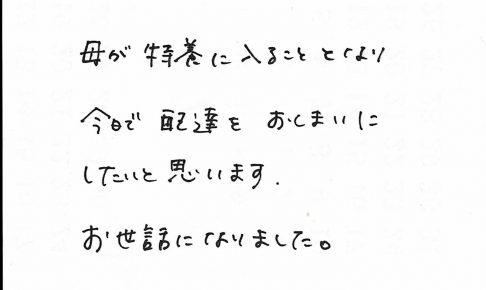 母が特養に入ることとなり
今日で配達をおしまいに
したいと思います.
お世話になりました。